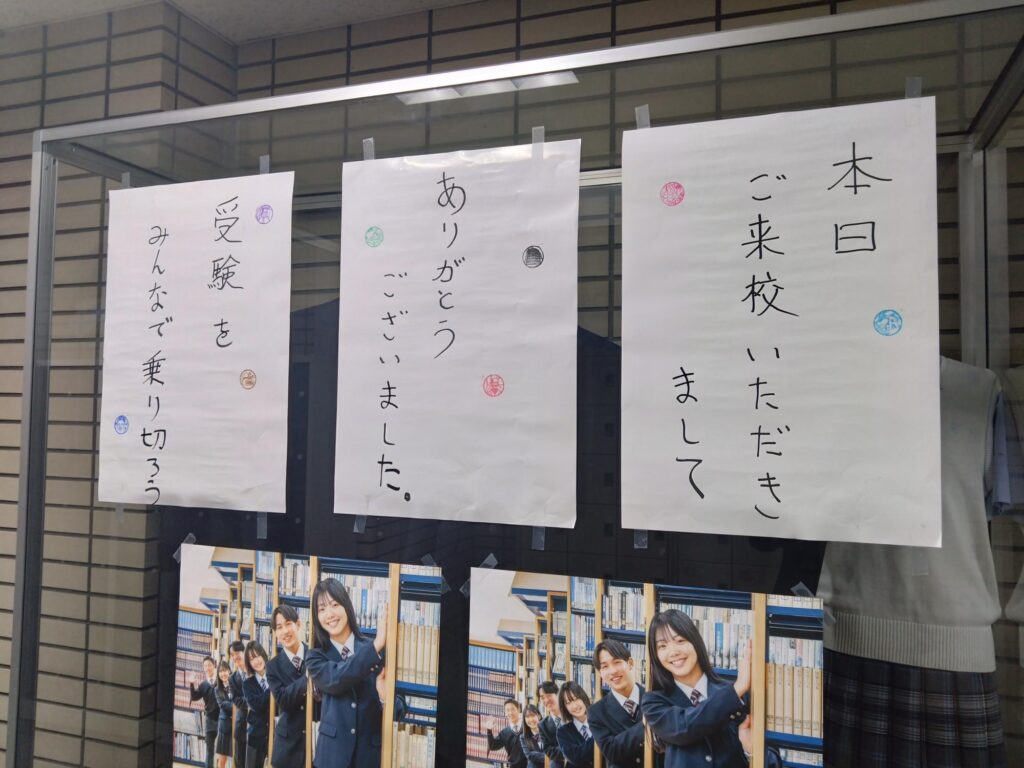 本日
ご来校いただき
まして
ありがとう
ございました。
受験を
みんなで乗り切ろう